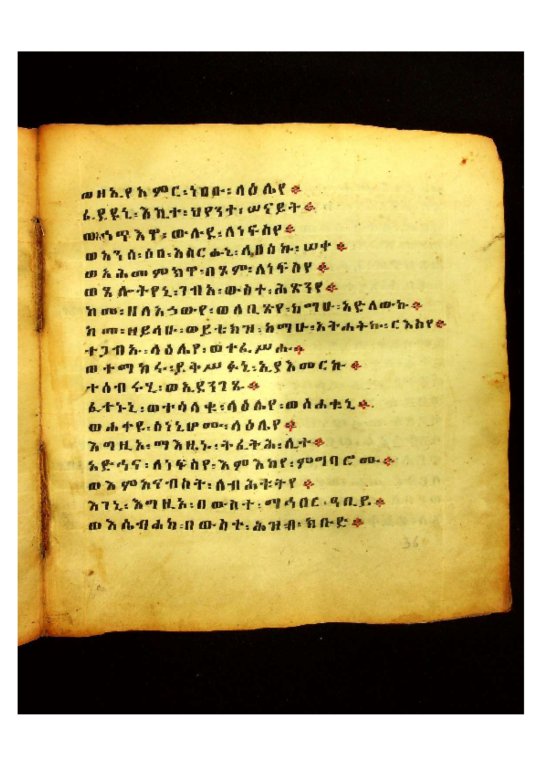 ወዘኢየአምር፡ነበቡ፡ላዕሌየ።
ፈደዩኒ፡እኪተ፡ህየንተ፡ሠናይት።
ወኀጣእዋ፡ውሉደ፡ለነፍስየ።
ወአንሰ፡ሶበ፡አስርሑኒ፡ለበስኩ፡ሠቀ።
ወአሕመምክዋ፡በጾም፡ለነፍስየ።
ወጸሎትየኒ፡ገብአ፡ውስተ፡ሕጽንየ።
ከመ፡ዘለአኃውየ፡ወለቢጽየ፡ከማሁ፡አድለውኩ።
ከመ፡ዘይላሁ፡ወይቴክዝ፡ከማሁ፡አትሐትኩ፡ርእስየ።
ተጋብኡ፡ላዕሌየ፡ወተፈሥሑ።
ወተማከሩ፡ይቅሥፉኒ፡ኢያእመርኩ።
ተሰብሩሂ፡ወኢደንገጹ።
ፈተኑኒ፡ወተሳለቁ፡ላዕሌየ፡ወሰሐቁኒ።
ወሐቀዩ፡ስነኒሆሙ፡ላዕሌየ።
እግዚኦ፡ማእዜኑ፡ትፈትሕ፡ሊተ።
አድኅና፡ለነፍስየ፡እምእከየ፡ምግባሮሙ።
ወእምአናብስት፡ለብሕቱትየ።
እገኒ፡እግዚኦ፡በውስተ፡ማኅበር፡ዓቢይ።
ወእሴብሐከ፡በውስተ፡ሕዝብ፡ክቡድ።
36